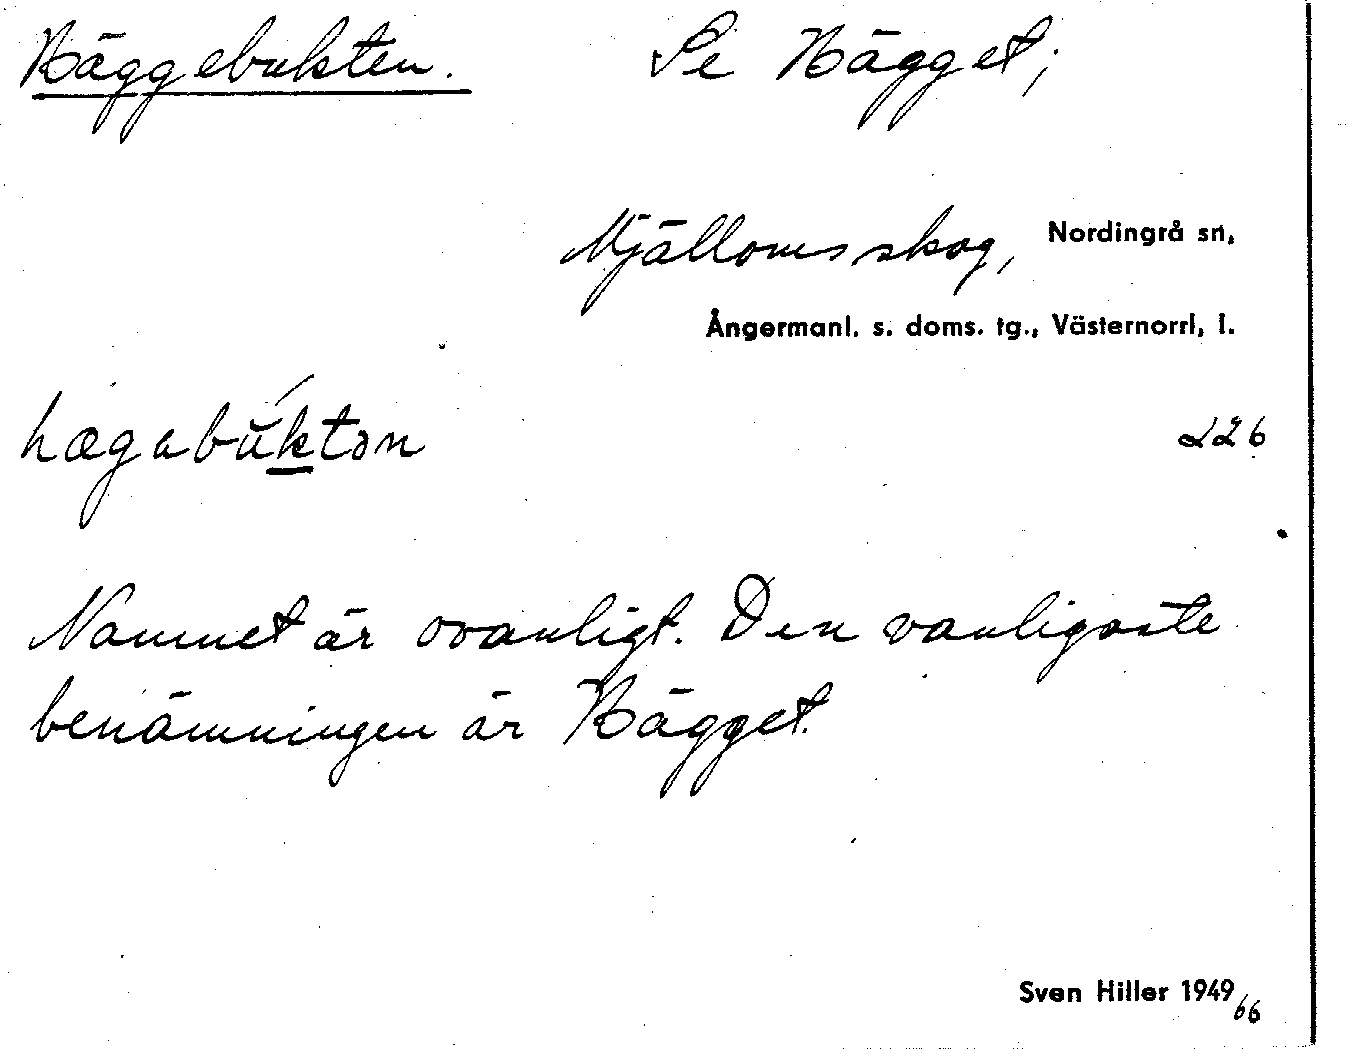 Häggebukten. Se Hägget;
Mjällomsskog, Nordingrå sn,
Ångermanl. s. doms. tg., Västernorrl, l.
hægabùktən
Namnet är ovanligt. Den vanligaste
benämningen är Hägget.
Sven Hiller 1949/66